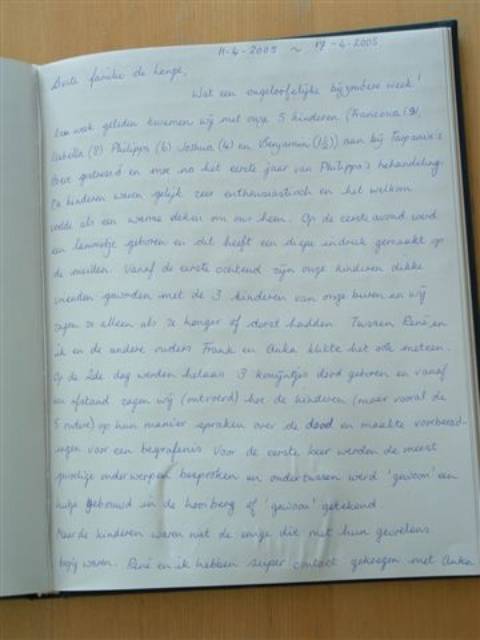 11-4-2005 ~ 17-4-2005
Beste familie de Lange,
Wat een ongelooflijke bijzondere week!
Een week geleden kwamen wij met onze 5 kinderen (Francesca (9),
Isabella (8) Philippa (6) Joshua (4) en Benjamin (1½)) aan bij
en moe na het eerste jaar van Philippa's behandeling.
De kinderen waren gelijk zeer enthousiastisch en het welkom
voelde als een warme deken om ons heen. Op de eerste avond werd
een lammetje geboren en dit heeft een diepe indruk gemaakt op
de meiden. Vanaf de eerste ochtend zijn onze kinderen dikke
vrienden geworden met de 3 kinderen van onze buren en wij
zagen ze alleen als ze honger of dorst hadden. Tussen René en
ik en de andere ouders Frank en Anka klikte het ook meteen.
Op de 2de dag werden helaas 3 konijntjes dood geboren en vanaf
een afstand zagen wij (ontroerd) hoe de kinderen (maar vooral de
5 ) op hun manier spraken over de dood en maakte voorbereid-
ingen voor een begrafenis. Voor de eerste keer werden de meest
onderwerpen besproken en ondertussen werd 'gewoon' een
hutje gebouwd in de hooiberg of 'gewoon' getekend.
Maar de kinderen waren niet de enige die met hun gevoelens
bezig waren. René en ik hebben super contact gekregen met Anka